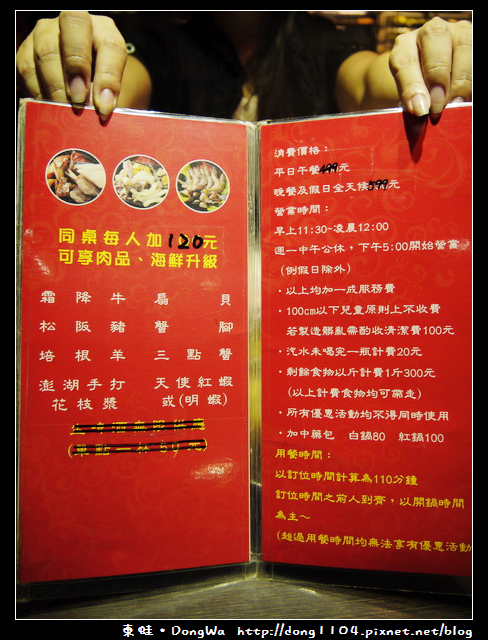 同桌每人加120元
可享肉品、海鮮升級
霜降牛 扇貝
松阪豬 蟹腳
培根羊 三點蟹
澎湖手打 天使紅蝦
花枝漿 或(明蝦)
消費價格：
平日午餐499元
晚餐及假日全天候599元
營業時間：
早上11:30~凌晨12:00
週一中午公休，下午5:00開始營業
(例假日除外)
·以上均加一成服務費
·100cm以下兒童原則上不收費
若製造髒亂需酌收清潔費100元
·汽水未喝完一瓶計費20元
·剩餘食物以斤計費1斤300元
(以上計費食物均可帶走)
·所有優惠活動均不得同時使用
·加中藥包 白鍋80 紅鍋100
用餐時間：
以訂位時間計算為110分鐘
訂位時間之前人到齊，以開鍋時間
為主~
(超過用餐時間均無法享有優惠活動
東蛙·DongWa http://dong1104.pixnet.net/blog